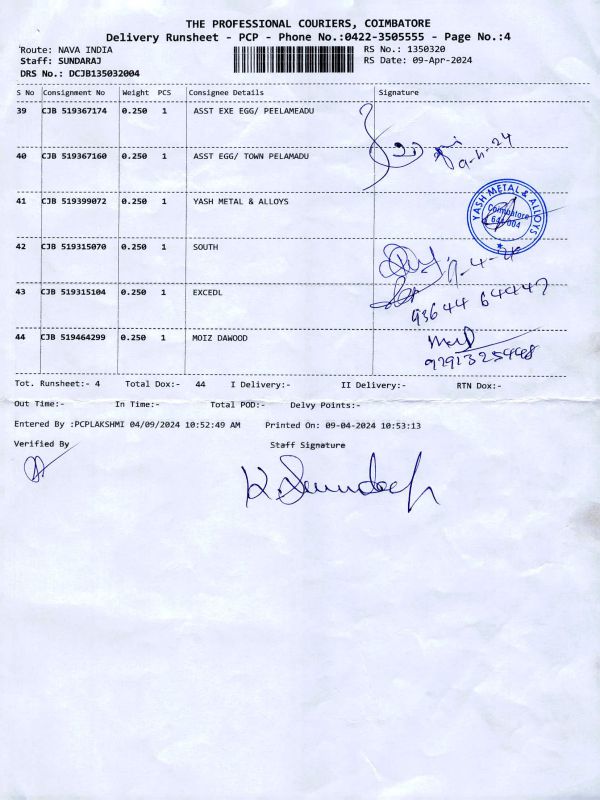 THE PROFESSIONAL COURIERS, COIMBATORE
Delivery Runsheet - PCP - Phone No.:0422-3505555 - Page No.:4
Route: NAVA INDIA
RS No.: 1350320
Staff: SUNDARAJ
RS Date: 09-Apr-2024
DRS No.: DCJB135032004
S No Consignment No Weight PCS Consignee Details Signature
39 CJB 519367174 0.250 1 ASST EXE EGG/ PEELAMEADU
40 CJB 519367160 0.250 1 ASST EGG/ TOWN PELAMADU
9-4-24
41 CJB 519399072 0.250 1 YASH METAL & ALLOYS
YASH METAL & ALLOYS
Coimbatore
641 004
42 CJB 519315070 0.250 1 SOUTH
43 CJB 519315104 0.250 1 EXCEDL
93644 64447
44 CJB 519464299 0.250 1 MOIZ DAWOOD
Tot. Runsheet:- 4 Total Dox:- 44 I Delivery:- II Delivery:- RTN Dox:-
Out Time:- In Time:- Total POD:- Delvy Points:-
Entered By :PCPLAKSHMI 04/09/2024 10:52:49 AM Printed On: 09-04-2024 10:53:13
Verified By Staff Signature